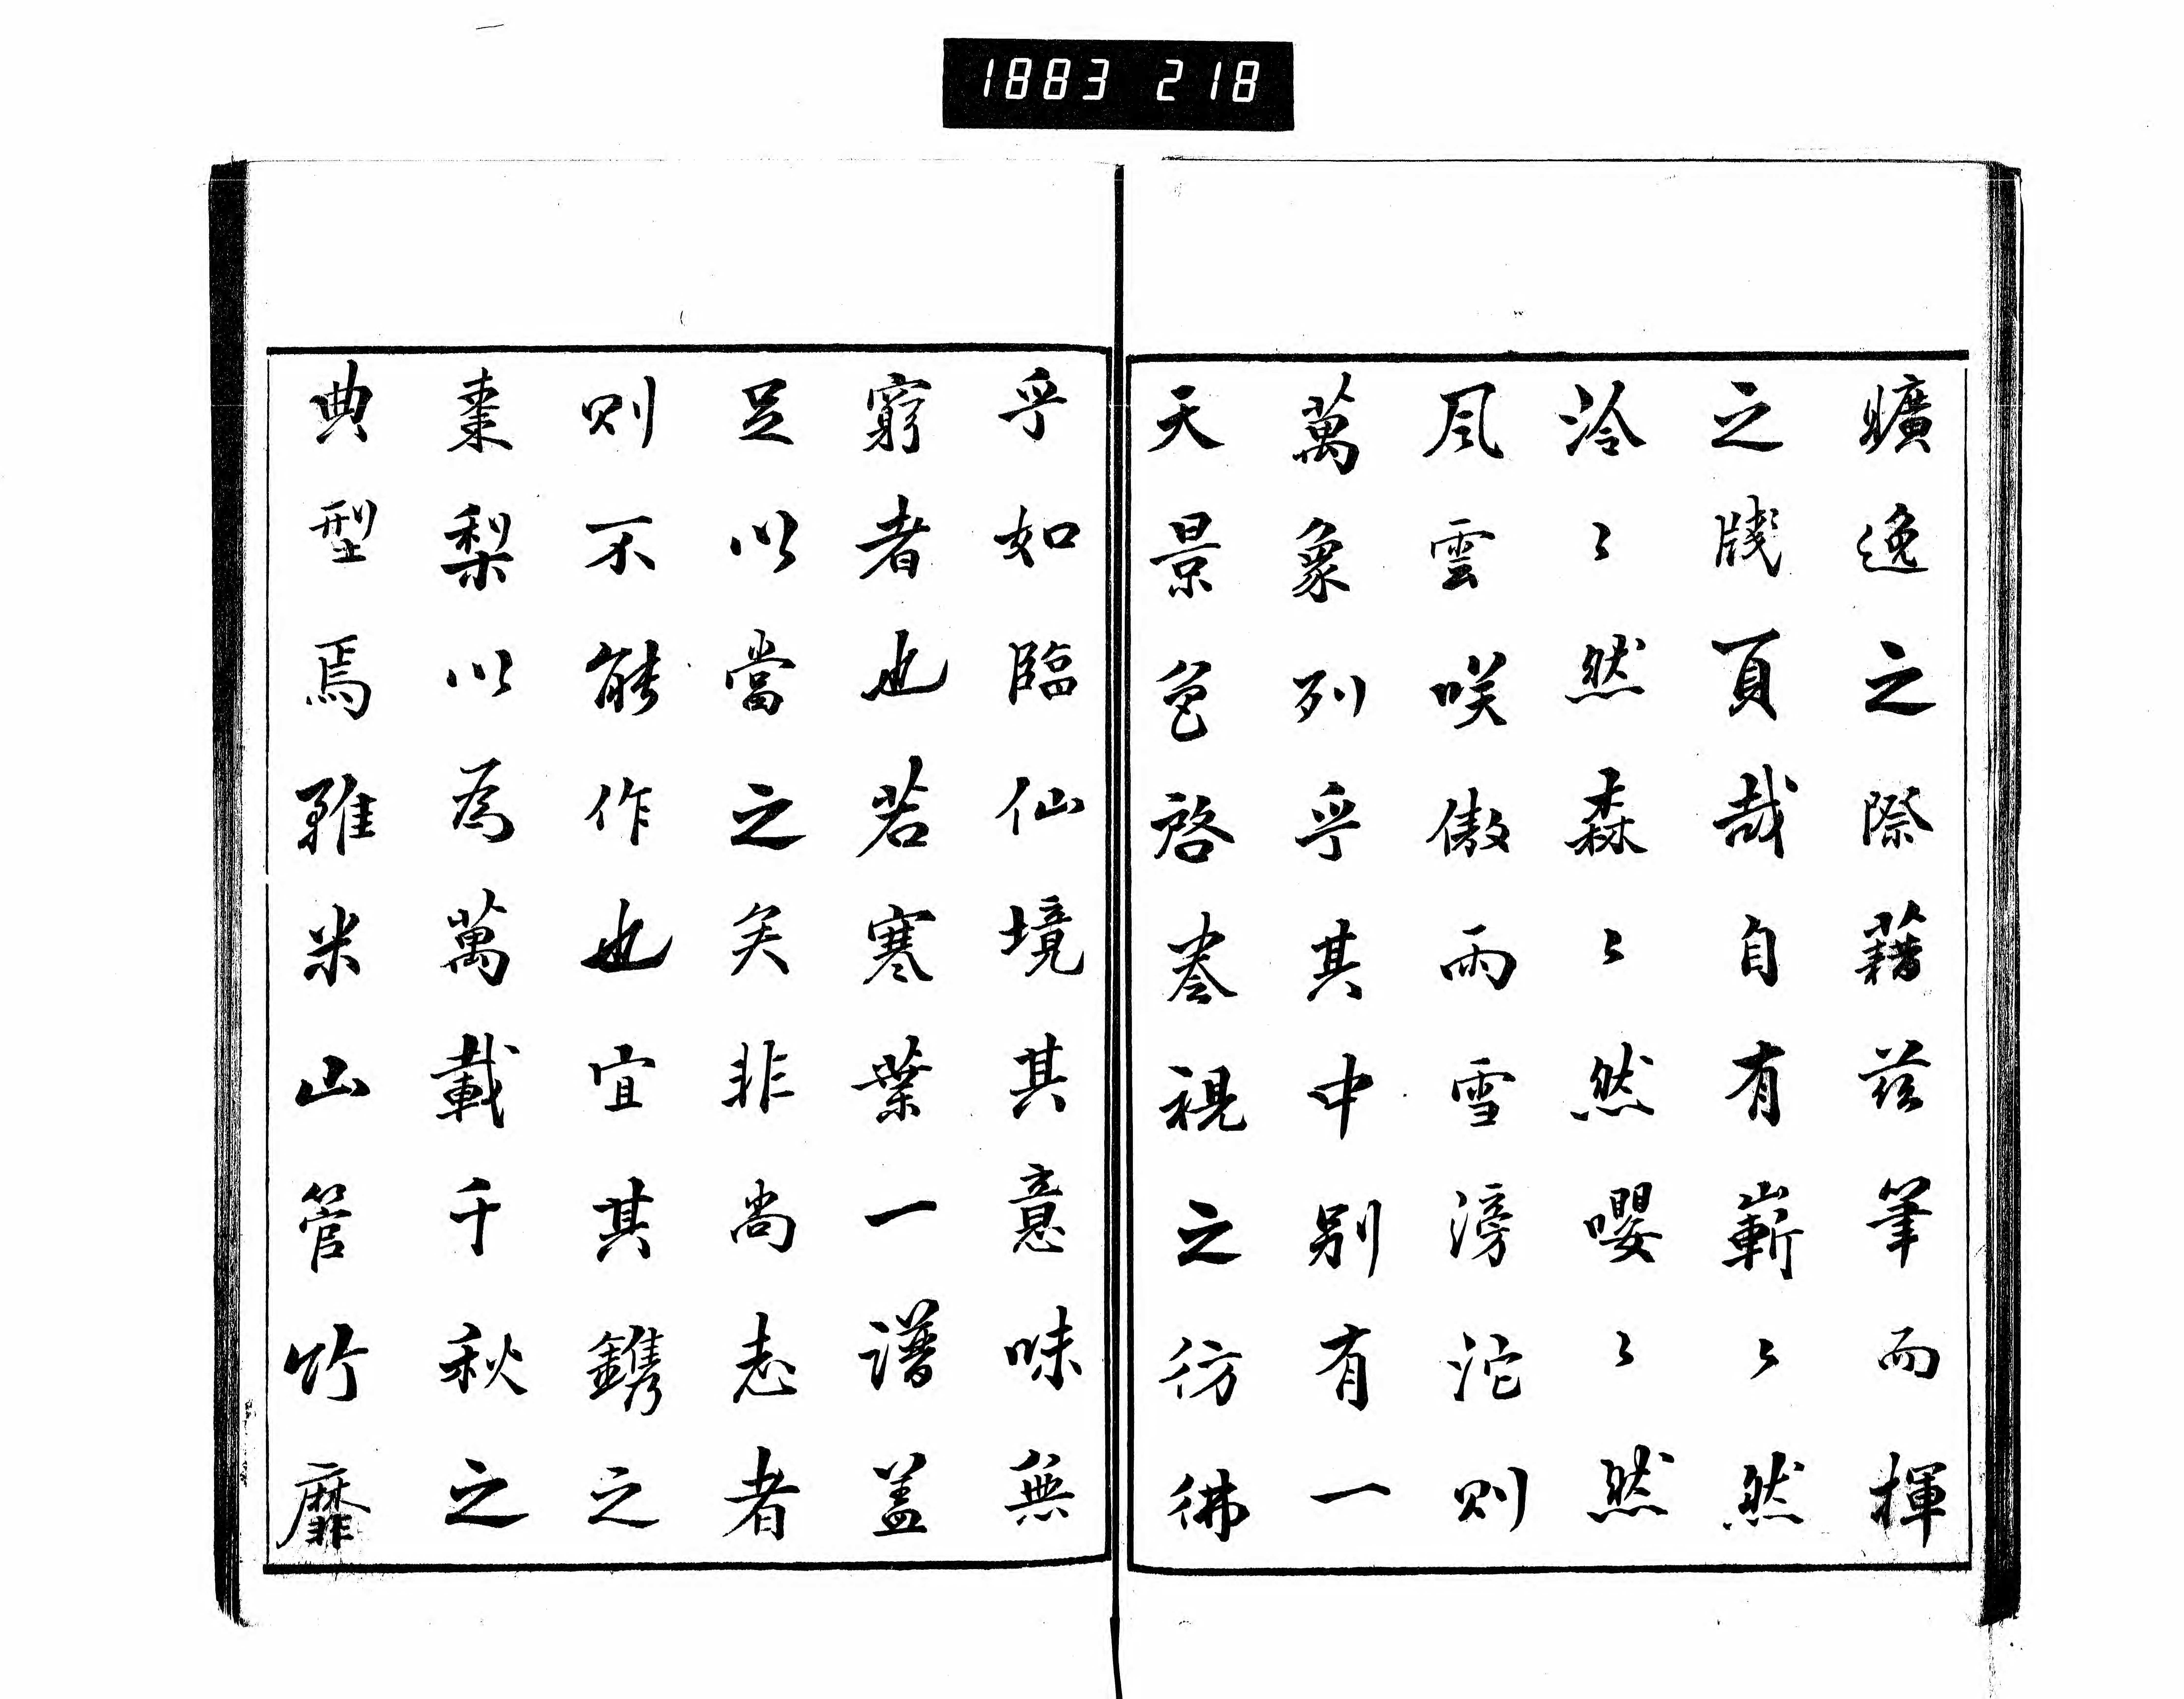 1883 218
曠逸之際藉茲筆而揮
之牋頁哉自有嶄〻然
泠〻然森〻然嚶〻然
風雲咲傲雨雪滂沱則
萬象列乎其中別有一
天景色啓巻視之彷彿
乎如臨仙境其意味無
窮者也若寒葉一譜蓋
足以當之矣非尚志者
則不能作也宜其鐫之
棗梨以為萬載千秋之
典型焉雖米山管竹靡